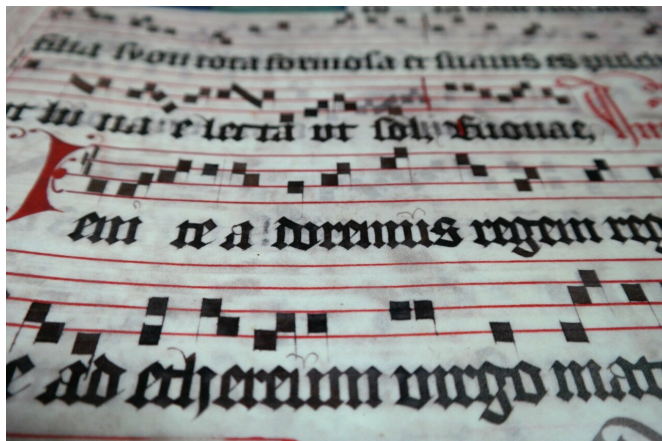 filia syon tota formosa et suauis es
ut lu na e lecta ut sol, Euouae,
Veni te a doremus regem reg
e ad ethereum virgo mat